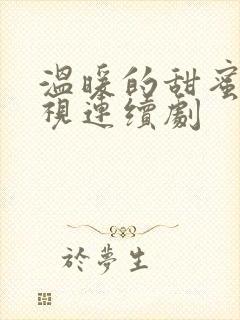 溫暖的甜蜜
視連續劇
於夢生